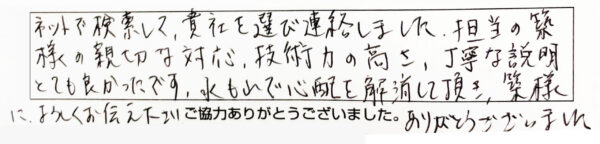 ネットで検索して、貴社を選び連絡しました。担当の築
様の親切な対応、技術力の高さ、丁寧な説明
とても良かったです。水もれで心配を解消して頂き、築様
に、よろしくお伝え下さい ご協力ありがとうございました。ありがとうございました